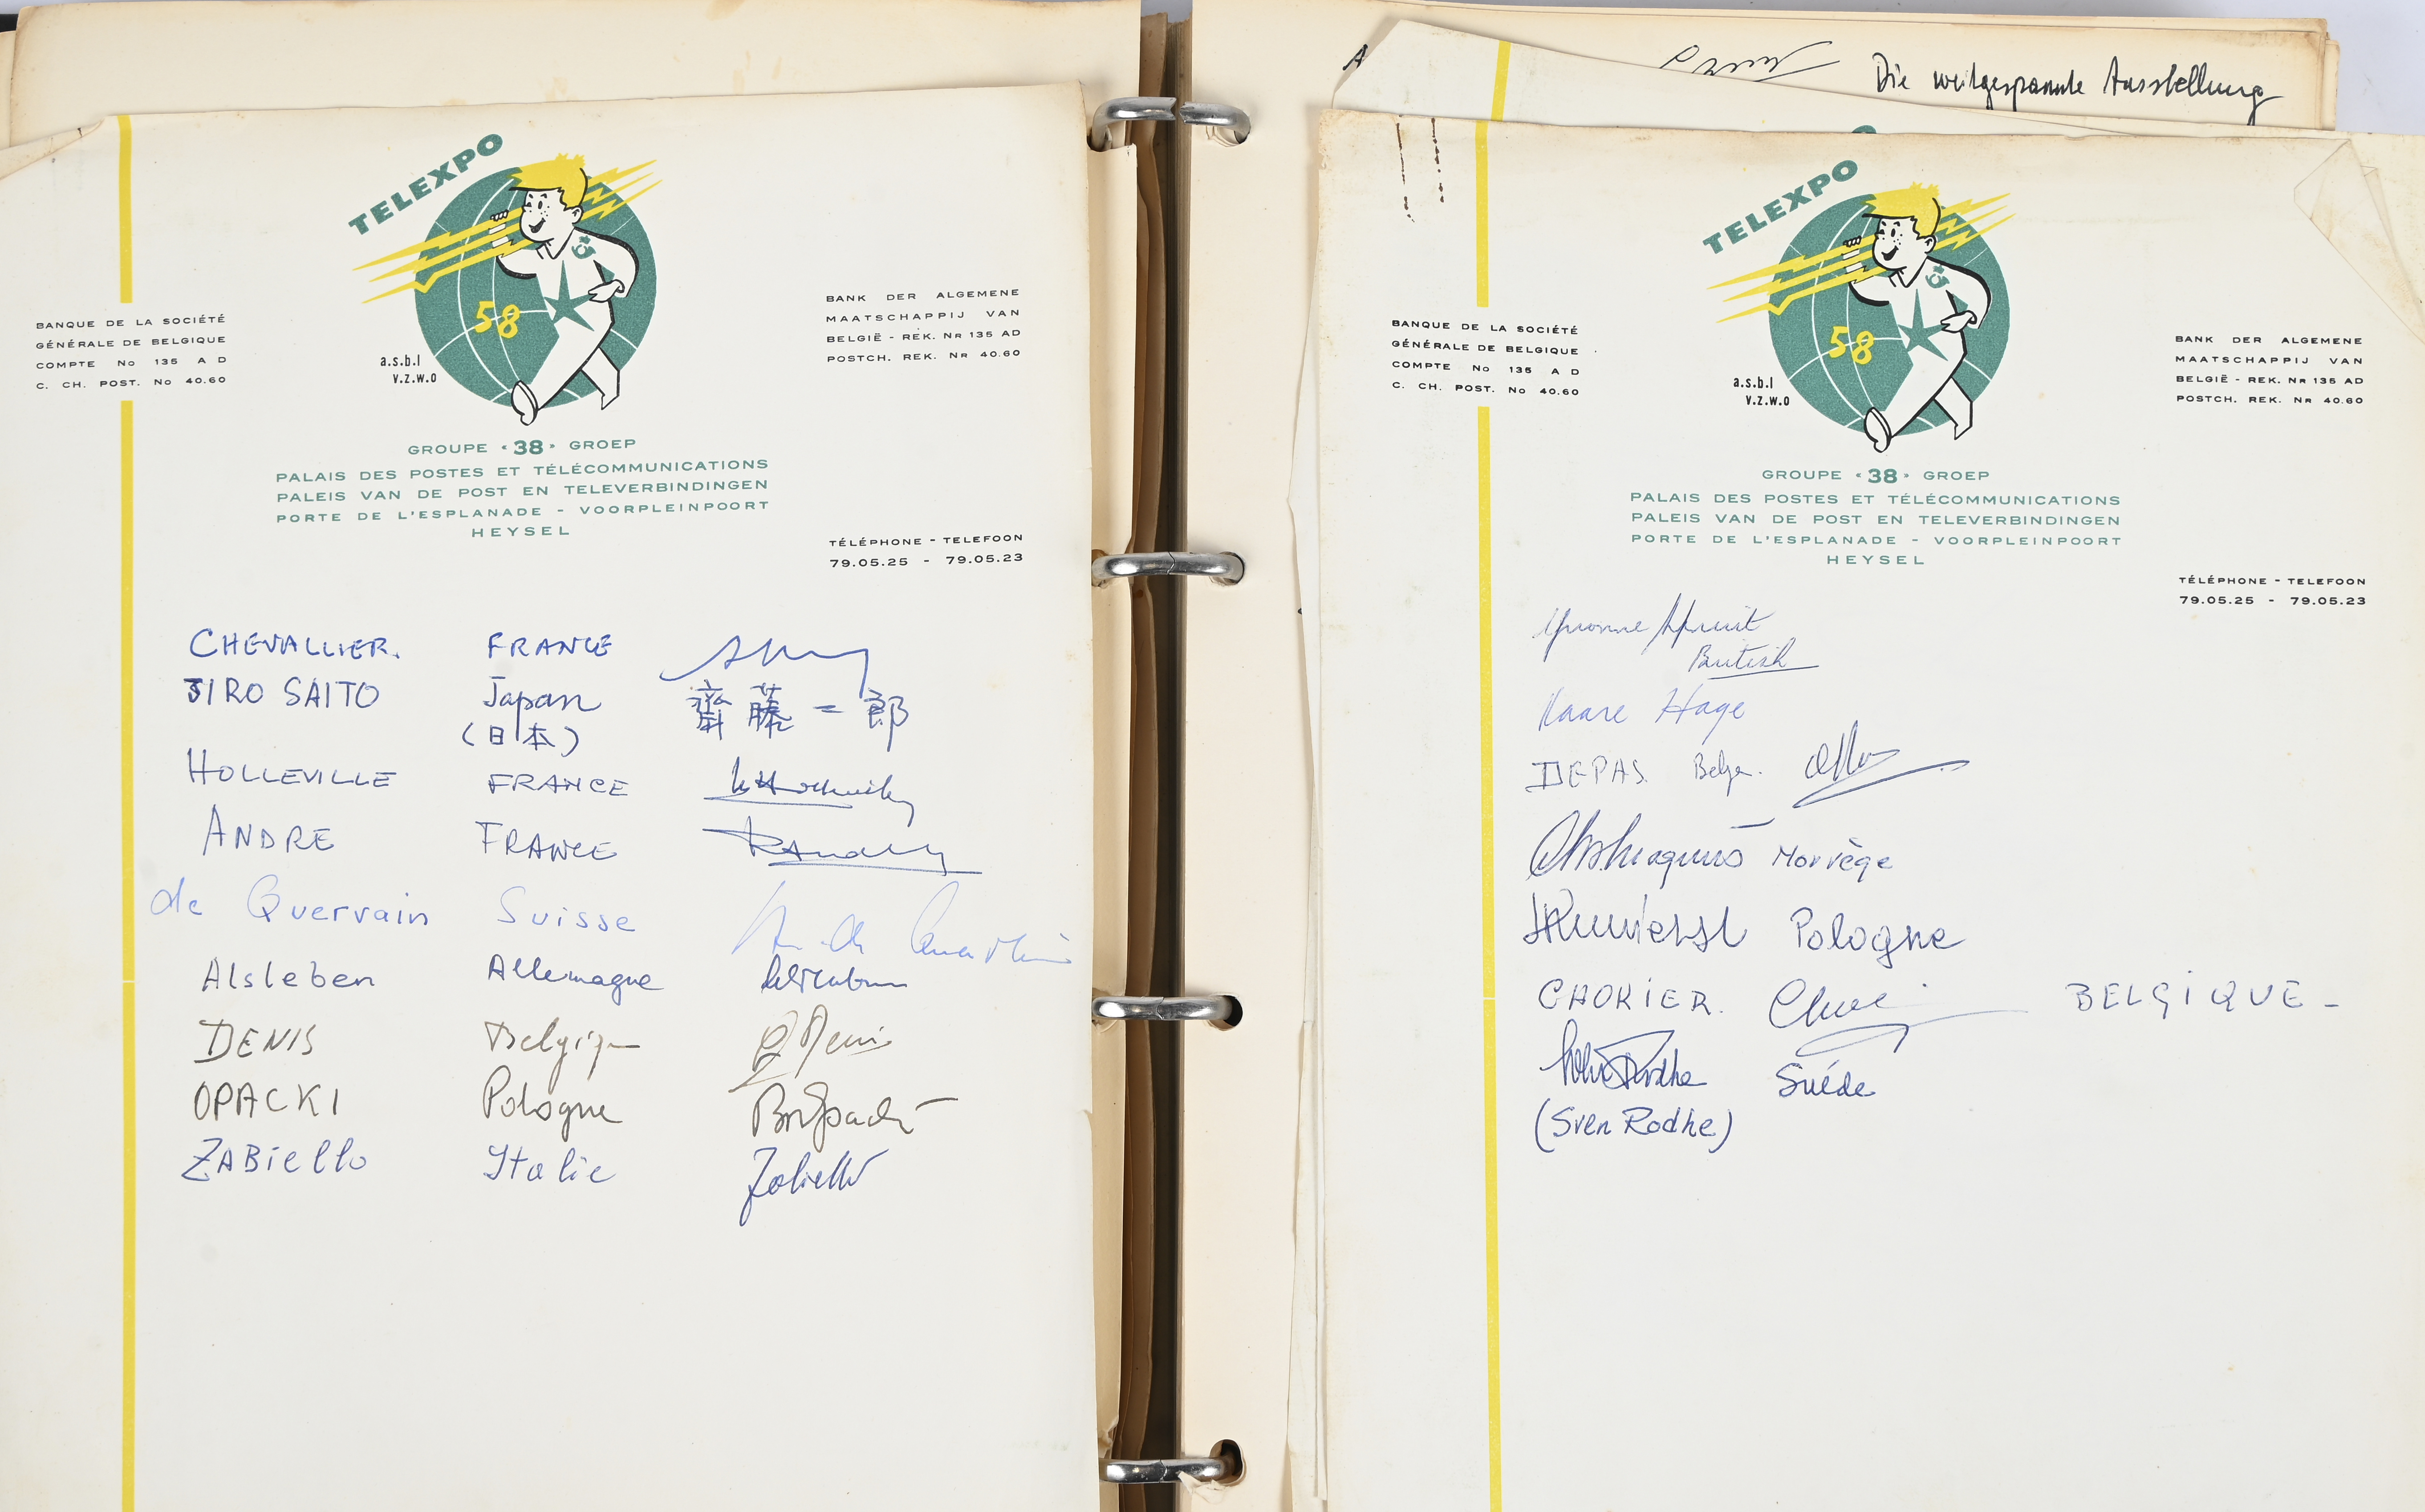 TELEXPO
58
a.s.b.l
V.Z.W.O
BANQUE DE LA SOCIÉTÉ
GÉNÉRALE DE BELGIQUE
COMPTE No 135 A D
C. CH. POST. No 40.60
BANK DER ALGEMENE
MAATSCHAPPIJ VAN
BELGIË - REK. Nr 135 AD
POSTCH. REK. Nr 40.60
GROUPE «38» GROEP
PALAIS DES POSTES ET TÉLÉCOMMUNICATIONS
PALEIS VAN DE POST EN TELEVERBINDINGEN
PORTE DE L'ESPLANADE - VOORPLEINPOORT
HEYSEL
TÉLÉPHONE - TELEFOON
79.05.25 - 79.05.23
CHEVALLIER. FRANCE
JIRO SAITO Japan 齋藤二郎
(日本)
HOLLEVILLE FRANCE
ANDRE FRANCE
de Quervain Suisse
Alsleben Allemagne
DENIS Belgique
OPACKI Pologne
ZABiello Italie
Die weitgespannte Ausstellung
TELEXPO
58
a.s.b.l
V.Z.W.O
BANQUE DE LA SOCIÉTÉ
GÉNÉRALE DE BELGIQUE
COMPTE No 135 A D
C. CH. POST. No 40.60
BANK DER ALGEMENE
MAATSCHAPPIJ VAN
BELGIË - REK. Nr 135 AD
POSTCH. REK. Nr 40.60
GROUPE «38» GROEP
PALAIS DES POSTES ET TÉLÉCOMMUNICATIONS
PALEIS VAN DE POST EN TELEVERBINDINGEN
PORTE DE L'ESPLANADE - VOORPLEINPOORT
HEYSEL
TÉLÉPHONE - TELEFOON
79.05.25 - 79.05.23
Yvonne
British
Kaare Hage
DEPAS
Norvège
Pologne
CHOKIER. BELGIQUE -
Suède
(Sven Rodhe)